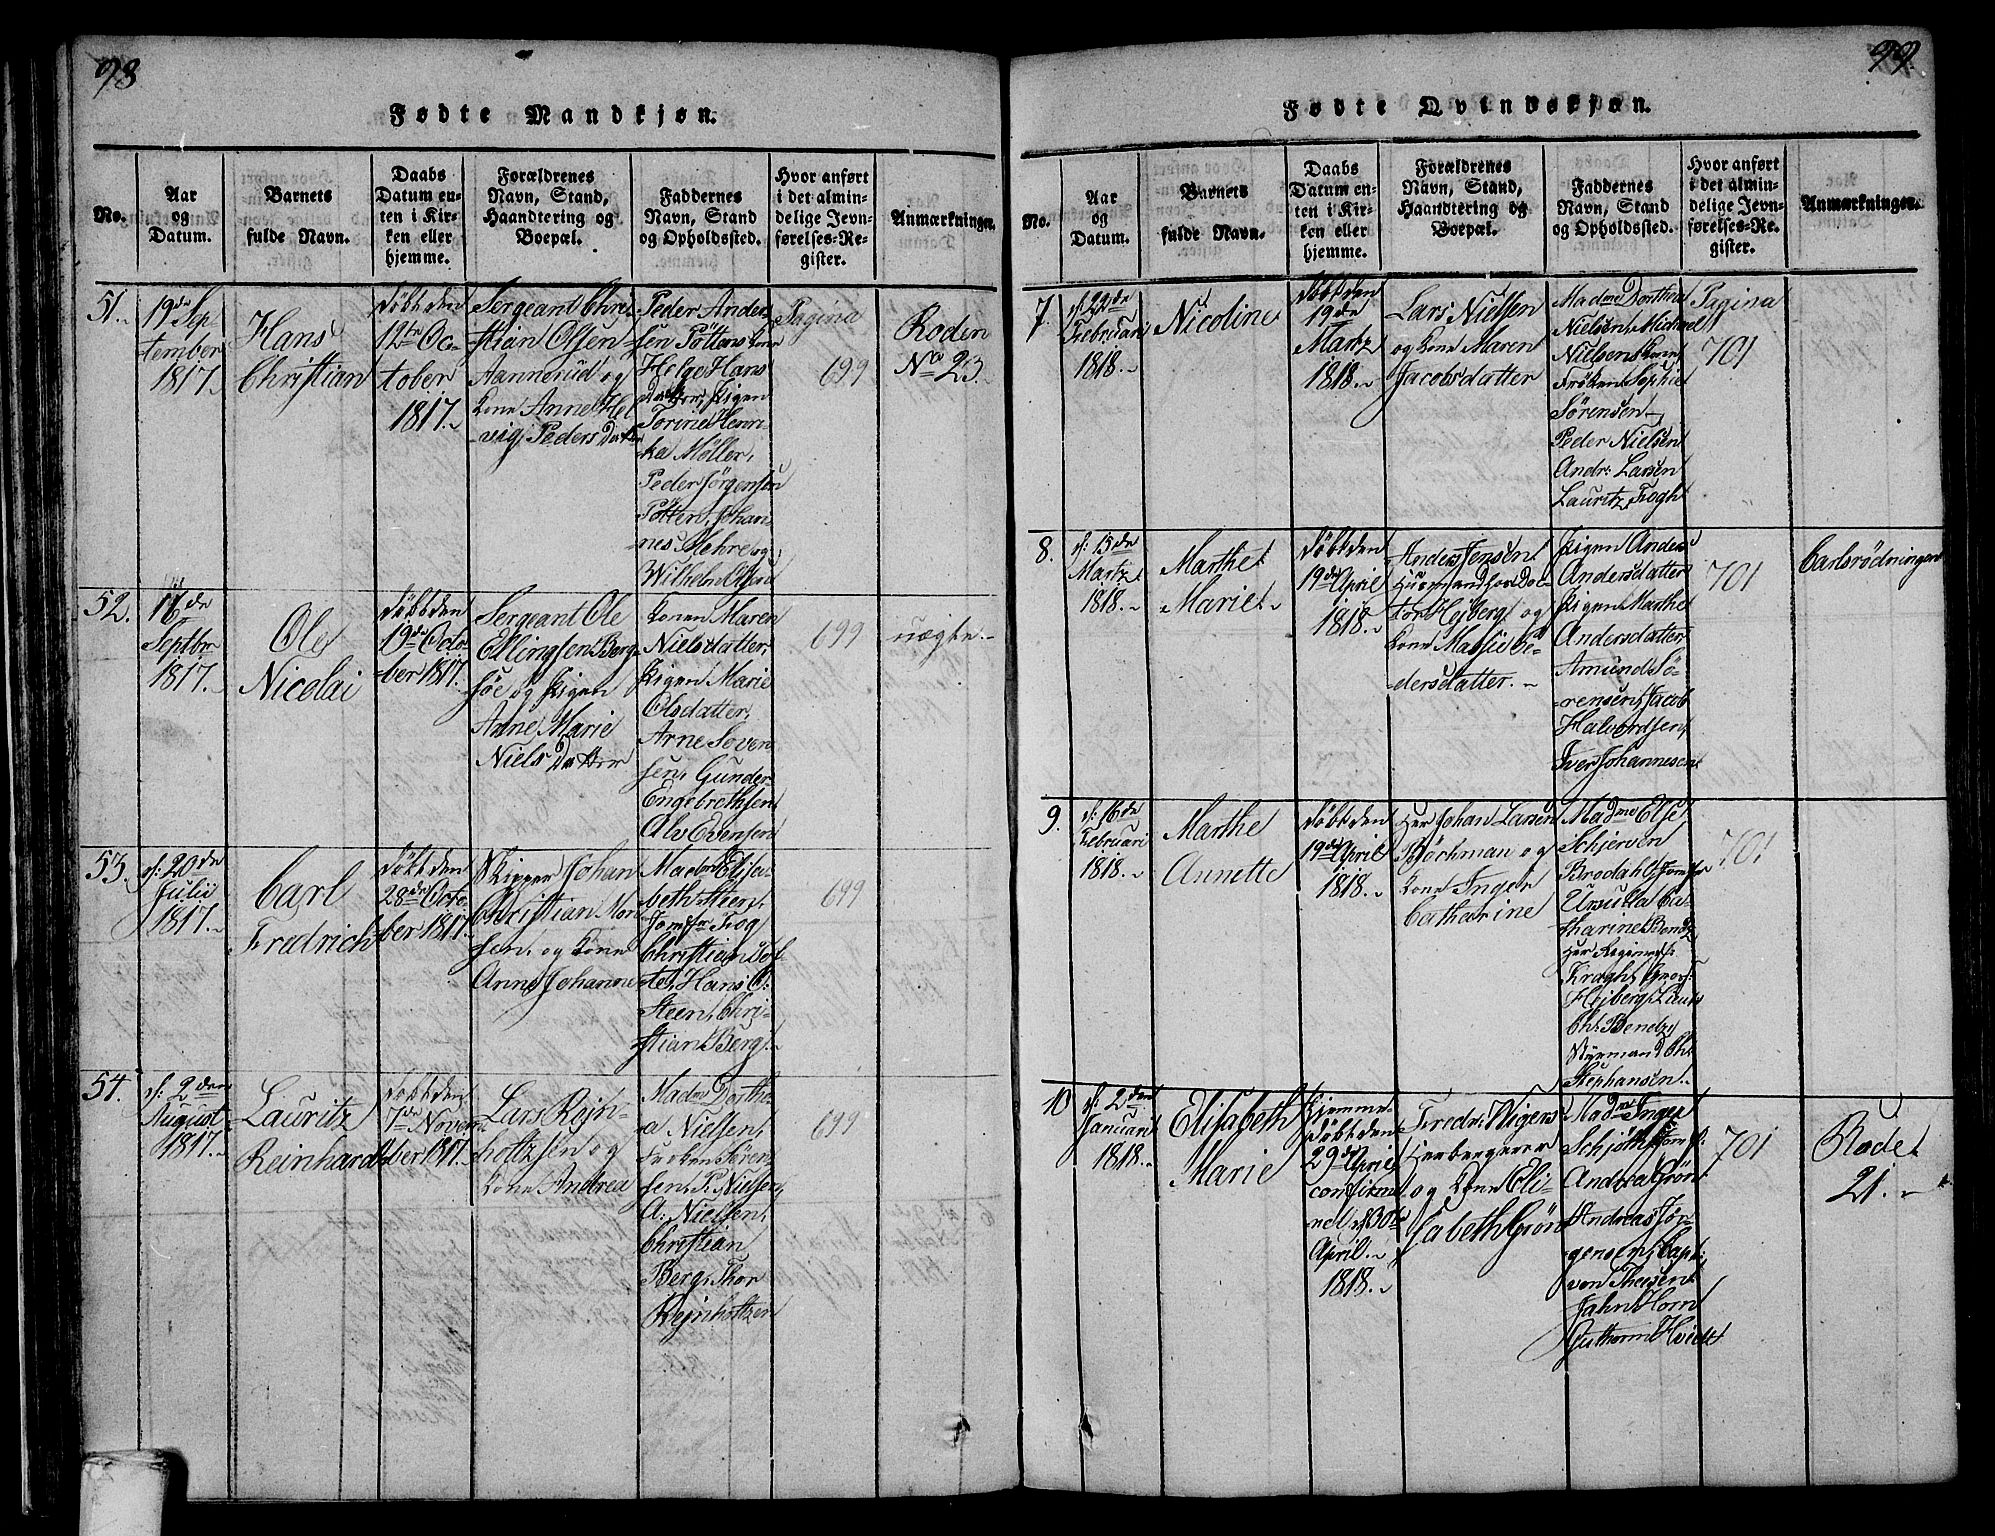 98
Fødte Mandkjøn.
No.
Aar
og
Datum.
Barnets
fulde Navn.
Daabs
Datum en-
ten i Kir-
ken eller
hjemme.
Forældrenes
Navn, Stand,
Haandtering og
Boepæl.
Faddernes
Navn, Stand
og Opholdssted.
Hvor anført
i det almin-
delige Jevn-
førelses-Re-
gister.
Anmærkninger.
51.
19de Sep
tember
1817.
Hans
Christian
døbt den
12te Oc-
tober
1817.
Sergeant Chri
stian Olsen
Aannerud og
Kone Anne Hel
vig Peders Datter
Peder Ander
sen Pötters Kone
Helge Hans
Datter, Pigen
Torine Henri
ka Møller,
Peder Jörgensen
Pötter, Johan
nes Mehre og
Wilhelm
Pagina
699
Roden
No 23.
52.
de
Septbr
1817.
Ole
Nicolai
døbt den
19de Octo
ber 1817.
Sergeant Ole
Ellingsen Berg
söe og Pigen
Anne Marie
Niels Datter
Konen Maren
Nielsdatter,
Pigen Marie
Olsdatter,
Arne Soven
sen, Gunder
Engebrethsen
Alv Evensen
699
uægte.
53.
d: 20de
Julii
1817.
Carl
Fredrich
døbt den
28de Octo
ber 1817.
Skipper Johan
Christian
sen, og Kone
Anne Johanne
Madm Elisa
beth Steen,
Jomfr Fog
Christian
te, Hans C:
Steen, Chri
stian Berg.
699
54.
d: 2den
August
1817.
Lauritz
Reinhardt
døbt den
7de Novem
ber 1817.
Lars Rejn-
holtzsen og
Kone Andrea
Madme Dorthe
a Nielsen,
Frøken Søren
sen, P: Nielsen,
A: Nielsen,
Christian
Berg, Thor
Rejnholtzen
699
99.
Fødte Qvindekjøn.
No.
Aar
og
Datum.
Barnets
fulde Navn.
Daabs
Datum en-
ten i Kir-
ken eller
hjemme.
Forældrenes
Navn, Stand,
Haandtering og
Boepæl.
Faddernes
Navn, Stand
og Opholdssted.
Hvor anført
i det almin-
delige Jevn-
førelses-Re-
gister.
Anmærkninger.
7.
d. 22de
Februari
1818.
Nicoline
døbt den
19de
Martz
1818.
Lars Nielsen
og Kone Maren
Jacobsdatter
Madme Dorthea
Nielsen, Michael
Nielsens Kone,
Frøken Sophie
Sörensen
Peder Nielsen
Andr: Larsen
Lauritz Fogh
Pagina
701
8.
d: 15de
Martz
1818.
Marthe
Marie
døbt den
19de April
1818.
Anders Jensen
Huusmand hos Doc
tor Hejberg og
Kone Massie Pe
dersdatter.
Pigen Anders
Andersdatter
Pigen Marthe
Andersdatter
Amund Sö-
rensen, Jacob
Halvordsen,
Iver Johannesen
701
Carlsrødningen
9.
d: 16de
Februari
1818.
Marthe
Annette
døbt den
19de April
1818.
Her Johan Larsen
Bøchman og
Kone Inger
Catharine
Madme Else
Schjerven
Brodahl, Jomfr
Ursulla Ca-
tharine Bentz
Her
Kragh,
Hejberg,
Ch: Bentz,
Styrmand Ch:
Stephansen.
701
10
d: 2den
Januari
1818.
Elisabeth
Marie
Hjemme
døbt den
29de April
confirme
ret d 30te
April.
1818.
Fredr: Wigers
Herbergerer
og Kone Eli-
sabeth Grön
Madme Inger
Schjöth, Jomf:
Andrea Grön
Andreas Jør-
gensen, Capt:
von Theesen
Jahn Horn
Guthorm Hvidt
701
Rode
21.